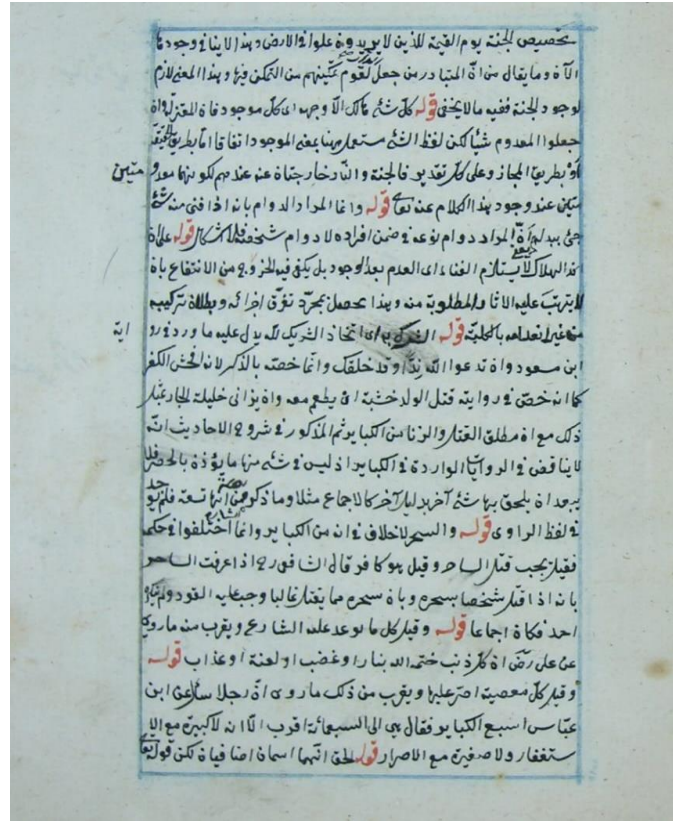 تخصيص الجنة يوم القيمة للذين لا يريدون علوا في الارض وهذا لا ينافي وجودها
الآن وما يقال من ان المتبادر من جعل لقوم تمكينهم من التمكن فيها وهذا المعنى لازم
لوجود الجنة ففيه ما لا يخفى قوله كل شئ هالك الا وجهه اى كل موجود فان المعتزلة وان
جعلوا المعدوم شيئا لكن لفظ الشئ مستعمل ههنا بمعنى الموجود اتفاقا اما بطريق الحقيقة
او بطريق المجاز وعلى كل تقدير فالجنة والنار خارجتان عنه عندهم لكونهما معدو
متين
متين عند وجود هذا الكلام عنه تعالى قوله وانما المراد الدوام بانه اذا فنى منه شئ
جئ ببدله اى المراد دوام نوعه في ضمن افراده لا دوام شخصه فلا اشكال قوله على ان
الهلاك لا يستلزم الفناء اى العدم بعد الوجود بل يكفى فيه الخروج من الانتفاع بان
لا يترتب عليه الاثار المطلوبة منه وهذا يحصل بمجرد تفرق اجزائه وبطلان تركيبه
من غير انعدامه بالكلية قوله الشرك بالله اى اتخاذ الشريك لله يدل عليه ما ورد في رو
اية
ابن مسعود وان تدعوا لله ندا وقد خلقك وانما خصه بالذكر لانه افحش الكفر
كما انه خص في رواية قتل الولد خشية ان يطعم معه وان يزانى حليلة الجار
ذلك مع ان مطلق القتل والزنا من الكبائر ثم المذكور في شروح الاحاديث انه
لا تناقض في الروايات الواردة في الكبائر اذ ليس في شئ منها ما يؤذن بالحصر فلا
يبعد ان يلحق بها شئ آخر بدليل آخر كالاجماع مثلا وما ذكر من انها تسعة فلم يو
جد
في لفظ الراوى قوله والسحر لا خلاف في انه من الكبائر وانما اختلفوا في حكمه
فقيل يجب قتل الساحر وقيل هو كافر قال الشافعى رح اذا عرفت الساحر
بانه اذا قتل شخصا بسحره وبان سحره مما يقتل غالبا وجب عليه القود ولم ينكره
احد فكان اجماعا قوله وقيل كل ما توعد عليه الشارع ويقرب منه ما روى
عن على رض ان كل ذنب ختمه الله بنار او غضب او لعنة او عذاب قوله
وقيل كل معصية اصر عليها ويقرب من ذلك ما روى ان رجلا سأل عن ابن
عباس اسبع الكبائر فقال هى الى السبعمائة اقرب الا انه لا كبيرة مع الا
ستغفار ولا صغيرة مع الاصرار قوله الحق انهما اسمان اضافيان لكن قوله تعالى